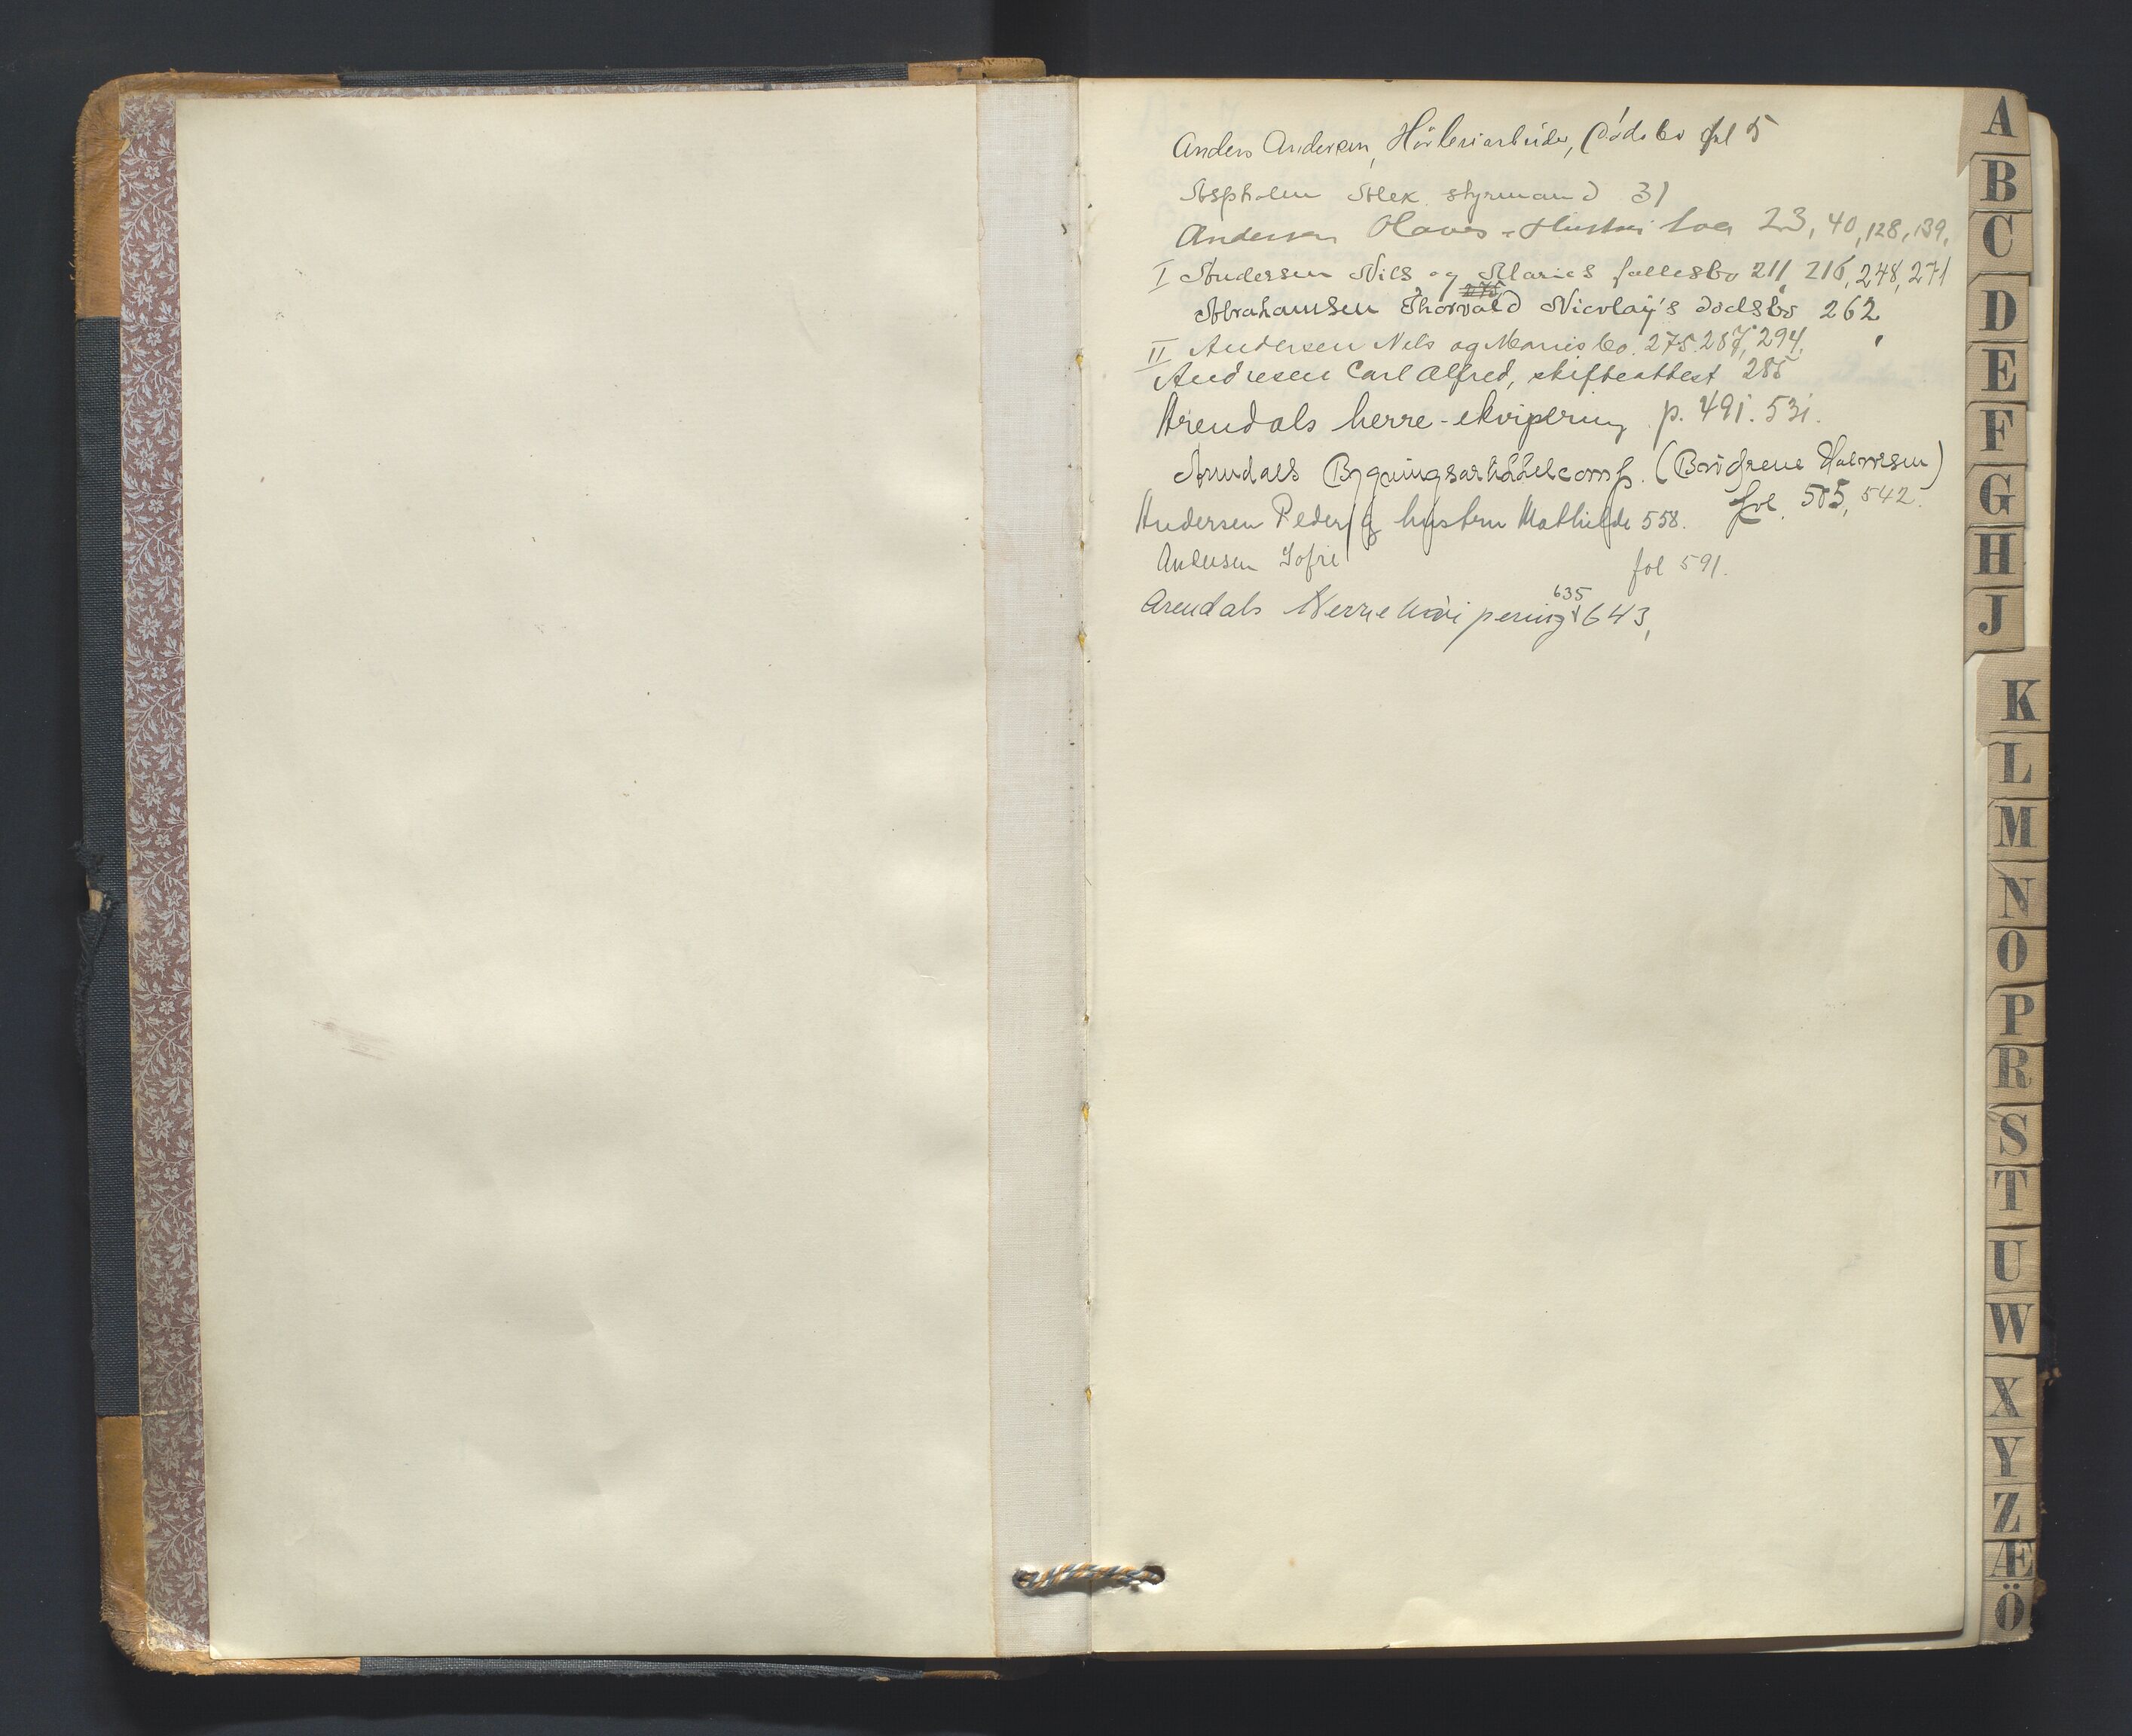 Anders Andersen, Høvleriarbeider, Dødsbo fol 5
Aspholm Alex. styrmand 31
Andersen Olaves - Hustru Lova 23, 40, 128, 139,
I Andersen Nils og Maries fællesbo 211, 216, 248, 271
275
Abrahamsen Thorvald Nicolay's dødsbo 262
II Andersen Nils og Maries bo. 275. 287, 294,
Andresen Carl Alfred, skifteattest 285
Arendals herre-ekvipering p. 491. 531.
Arendals Bygningsartikkelcomp. (Halvorsen)
fol. 505, 542.
Andersen Peder og hustru Mathilde 558.
Andersen Sofie fol 591.
635
Arendals Herreekvipering 643,
A
B
C
D
E
F
G
H
J
K
L
M
N
O
P
R
S
T
U
W
X
Y
Z
Æ
Ö